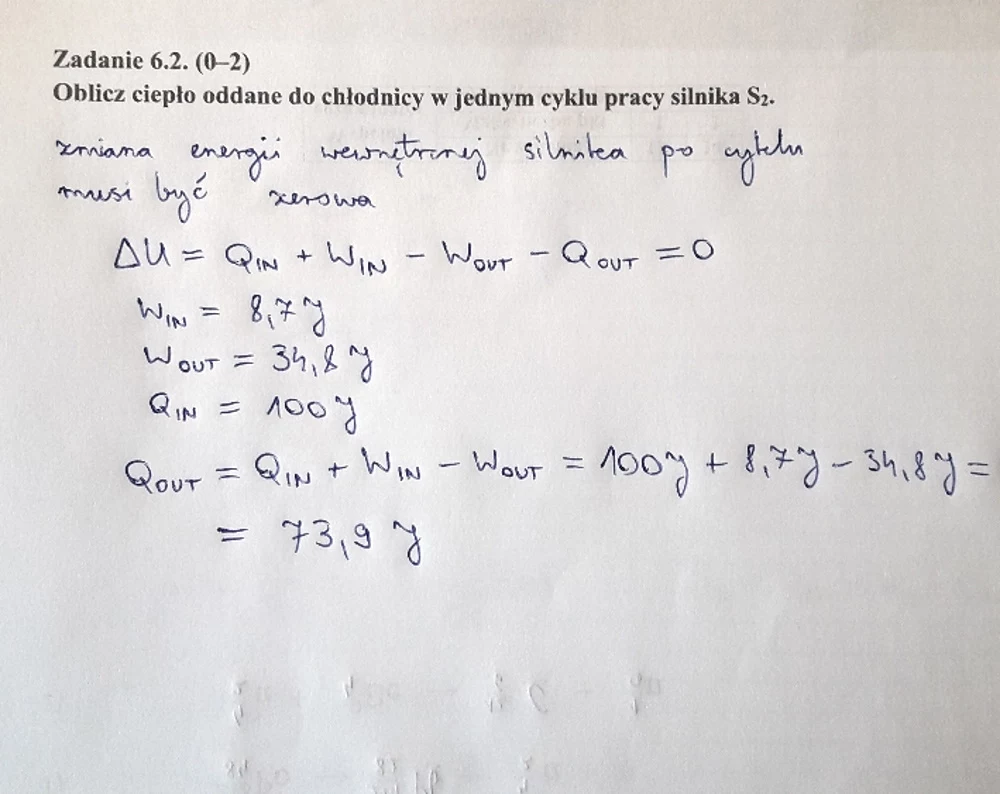 Zadanie 6.2. (0–2)
Oblicz ciepło oddane do chłodnicy w jednym cyklu pracy silnika S₂.
zmiana energii wewnętrznej silnika po cyklu
musi być zerowa
ΔU = Q_IN + W_IN − W_OUT − Q_OUT = 0
W_IN = 8,7 J
W_OUT = 34,8 J
Q_IN = 100 J
Q_OUT = Q_IN + W_IN − W_OUT = 100 J + 8,7 J − 34,8 J =
= 73,9 J